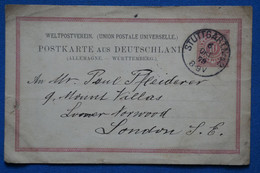 WELTPOSTVEREIN. (UNION POSTALE UNIVERSELLE.)
POSTKARTE AUS DEUTSCHLAND
(ALLEMAGNE. – WÜRTTEMBERG.)
STUTTGART
An Mr. Paul Pfleiderer
9, Mount Villas
Lower Norwood
London S. E.